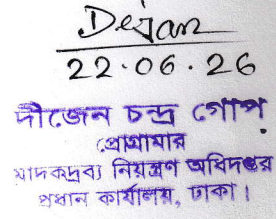 Dejan
22.06.26
দীজেন চন্দ্র গোপ
প্রোগ্রামার
মাদকদ্রব্য নিয়ন্ত্রণ অধিদপ্তর
প্রধান কার্যালয়, ঢাকা।